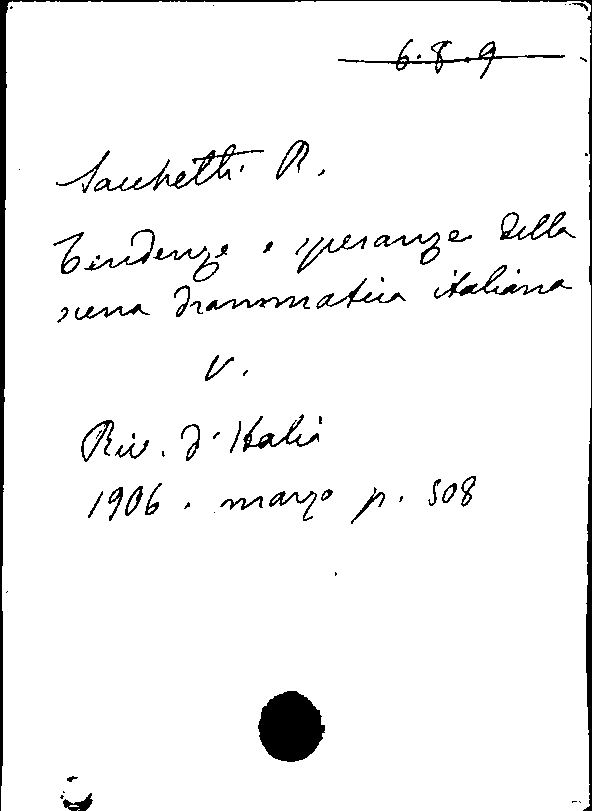 6.8.9
Sacchetti R.
Tendenze e speranze della
scena drammatica italiana
V.
Riv. d'Italia
1906. marzo p. 508